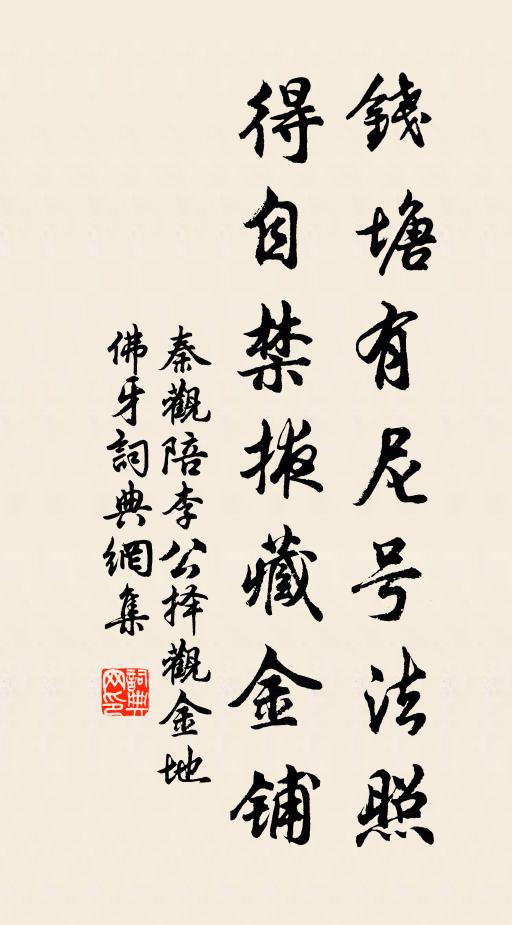 錢塘有尼号法照
得自禁掖藏金鋪
秦觀陪李公择觀金地
佛牙詞典網集
詞典网印